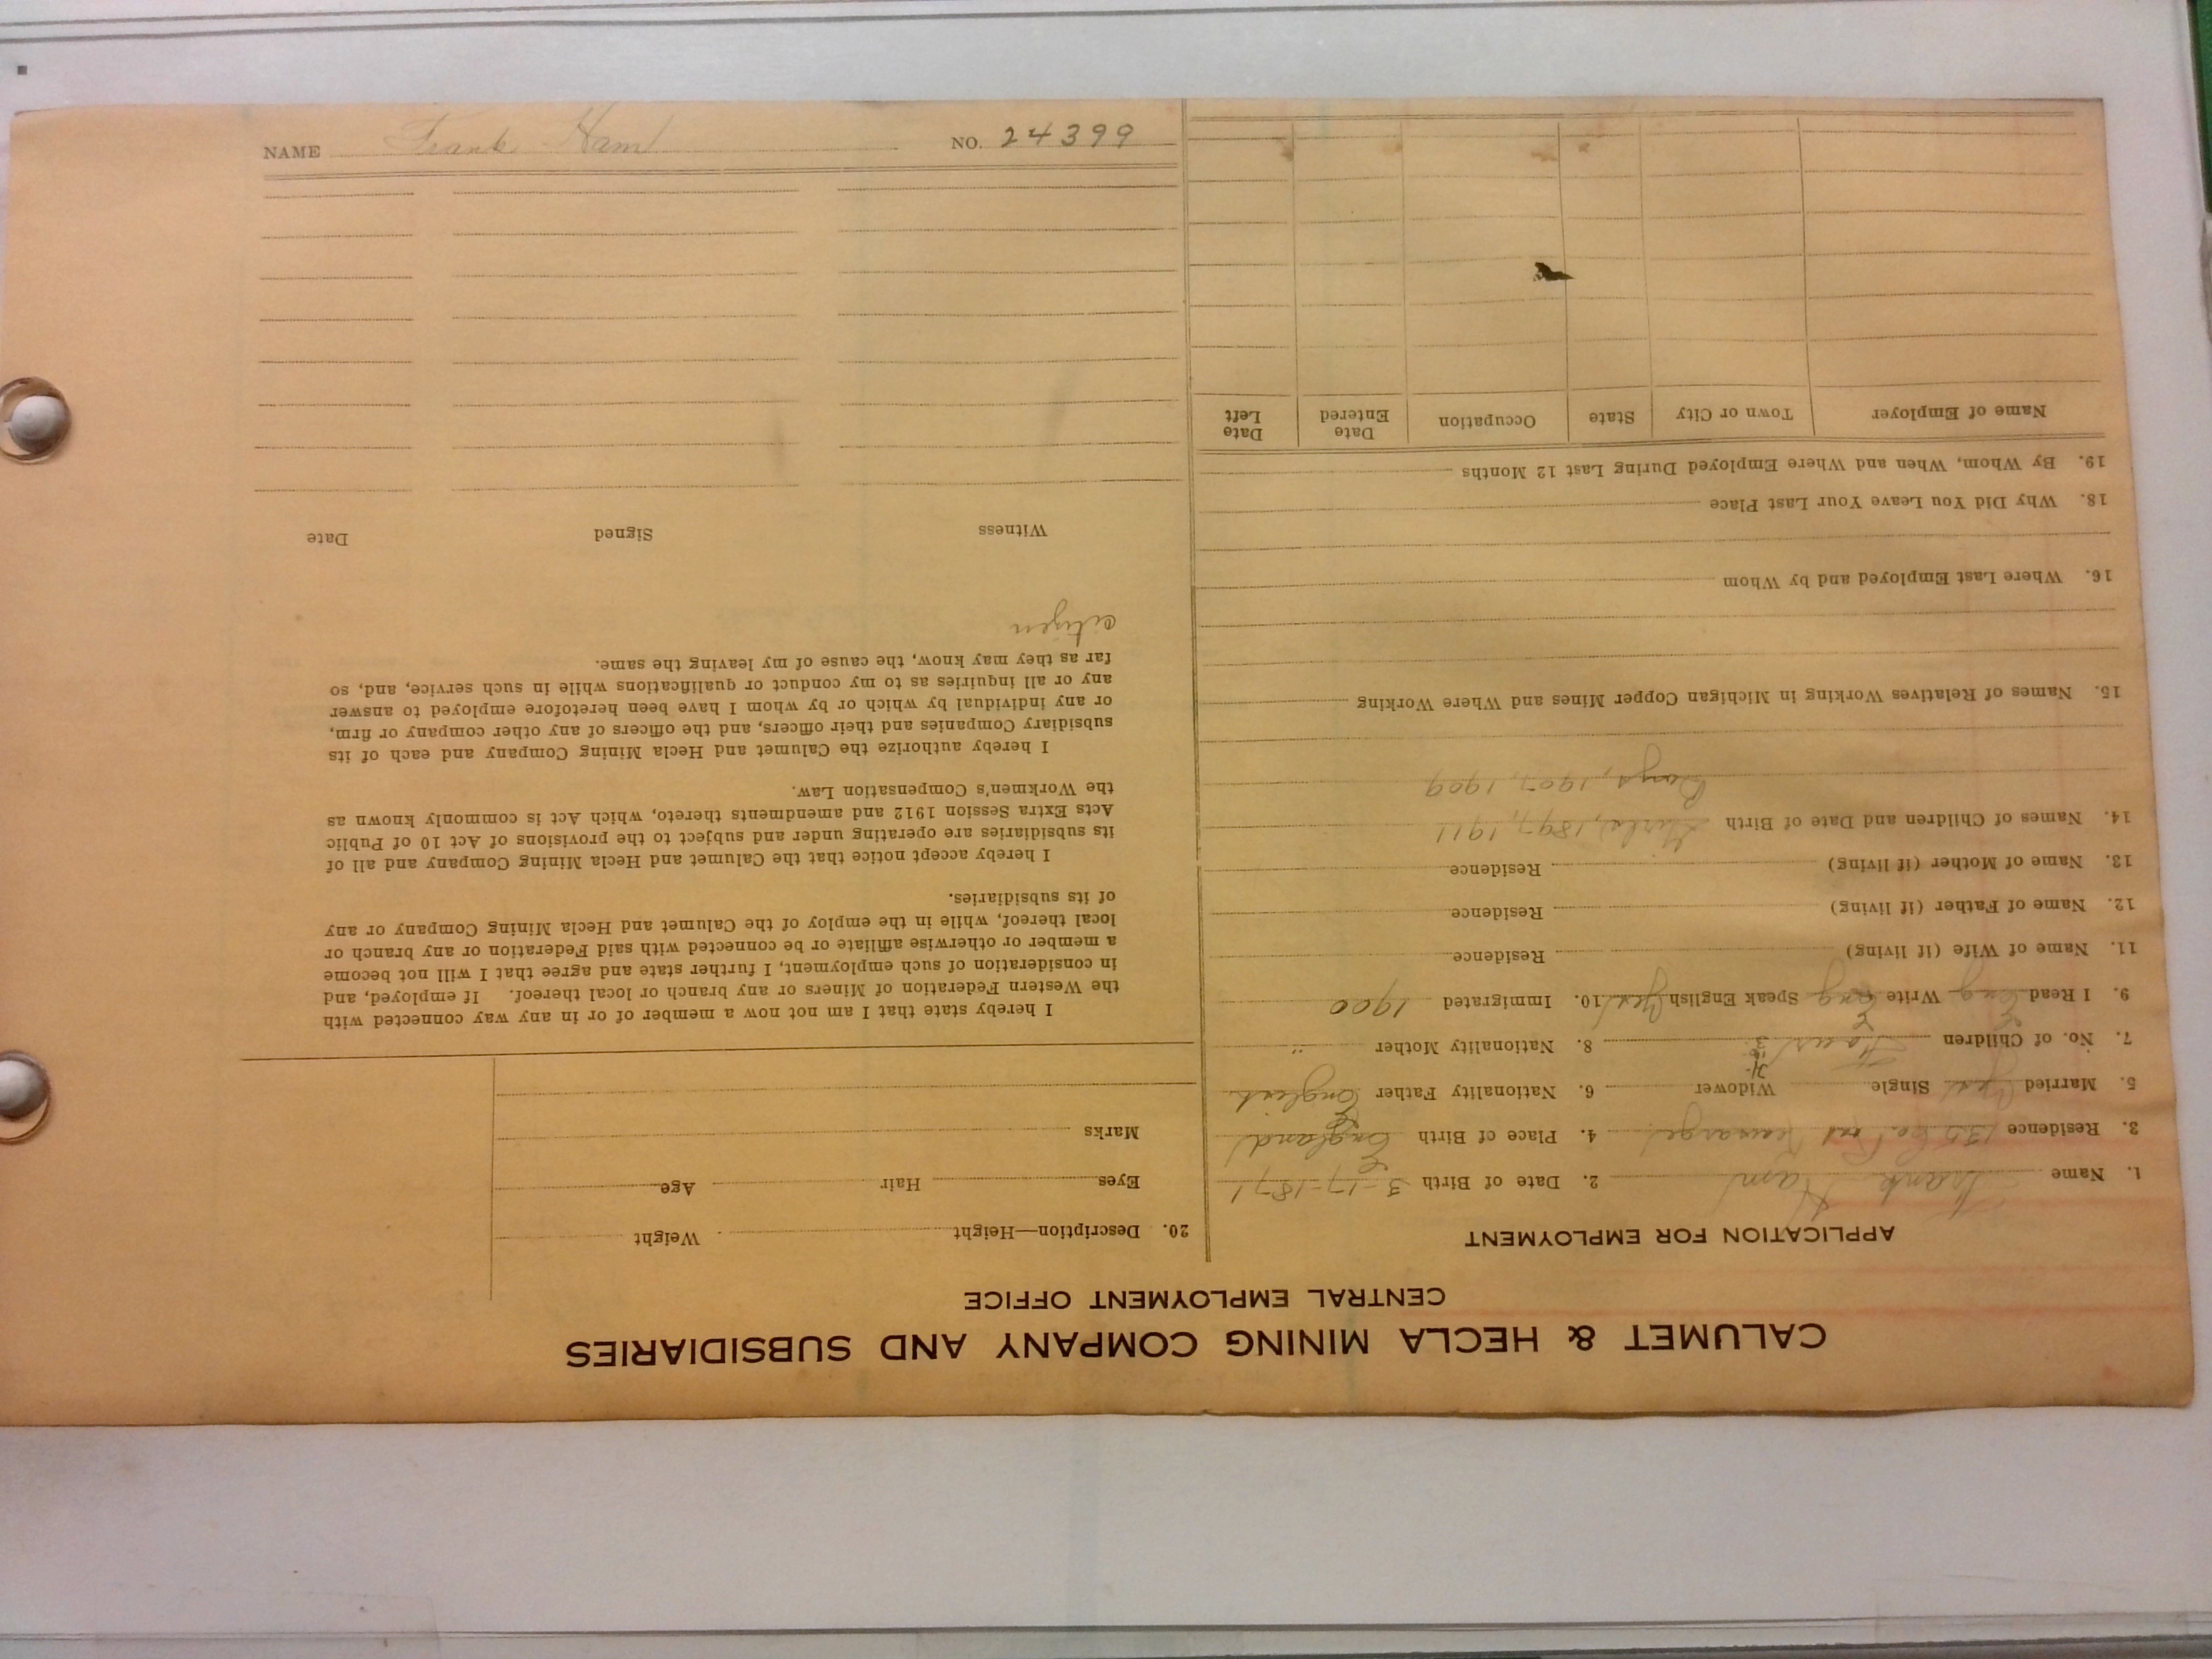 CALUMET & HECLA MINING COMPANY AND SUBSIDIARIES
CENTRAL EMPLOYMENT OFFICE
APPLICATION FOR EMPLOYMENT
1. Name Frank Ham 2. Date of Birth 3-17-1871
3. Residence 135 Kearsarge 4. Place of Birth England
5. Married Yes Single Widower 6. Nationality Father English
7. No. of Children Four 8. Nationality Mother "
9. I Read Eng Write Eng Speak English Yes 10. Immigrated 1900
11. Name of Wife (if living) Residence
12. Name of Father (if living) Residence
13. Name of Mother (if living) Residence
14. Names of Children and Date of Birth Girls, 1897, 1911
Boys, 1907, 1909
15. Names of Relatives Working in Michigan Copper Mines and Where Working
16. Where Last Employed and by Whom
18. Why Did You Leave Your Last Place
19. By Whom, When and Where Employed During Last 12 Months
Name of Employer Town or City State Occupation Date Entered Date Left
20. Description—Height Weight
Eyes Hair Age
Marks
I hereby state that I am not now a member of or in any way connected with
the Western Federation of Miners or any branch or local thereof. If employed, and
in consideration of such employment, I further state and agree that I will not become
a member or otherwise affiliate or be connected with said Federation or any branch or
local thereof, while in the employ of the Calumet and Hecla Mining Company or any
of its subsidiaries.
I hereby accept notice that the Calumet and Hecla Mining Company and all of
its subsidiaries are operating under and subject to the provisions of Act 10 of Public
Acts Extra Session 1912 and amendments thereto, which Act is commonly known as
the Workmen's Compensation Law.
I hereby authorize the Calumet and Hecla Mining Company and each of its
subsidiary Companies and their officers, and the officers of any other company or firm,
or any individual by which or by whom I have been heretofore employed to answer
any or all inquiries as to my conduct or qualifications while in such service, and, so
far as they may know, the cause of my leaving the same.
citizen
Witness Signed Date
NAME Frank Ham NO. 24399